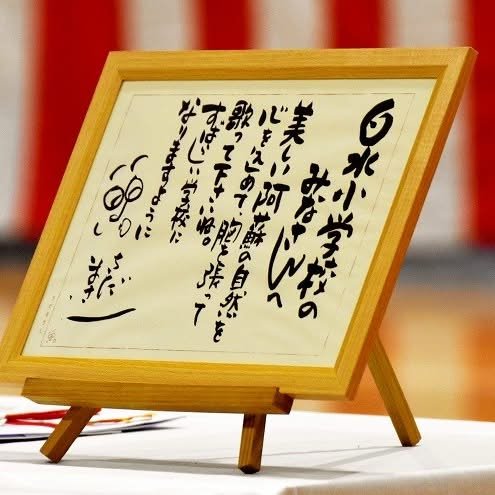 白水小学校の
みなさんへ
美しい阿蘇の自然を
心を込めて、胸を張って
歌って下さいね。
すばらしい学校に
なりますように
さだ
まさし